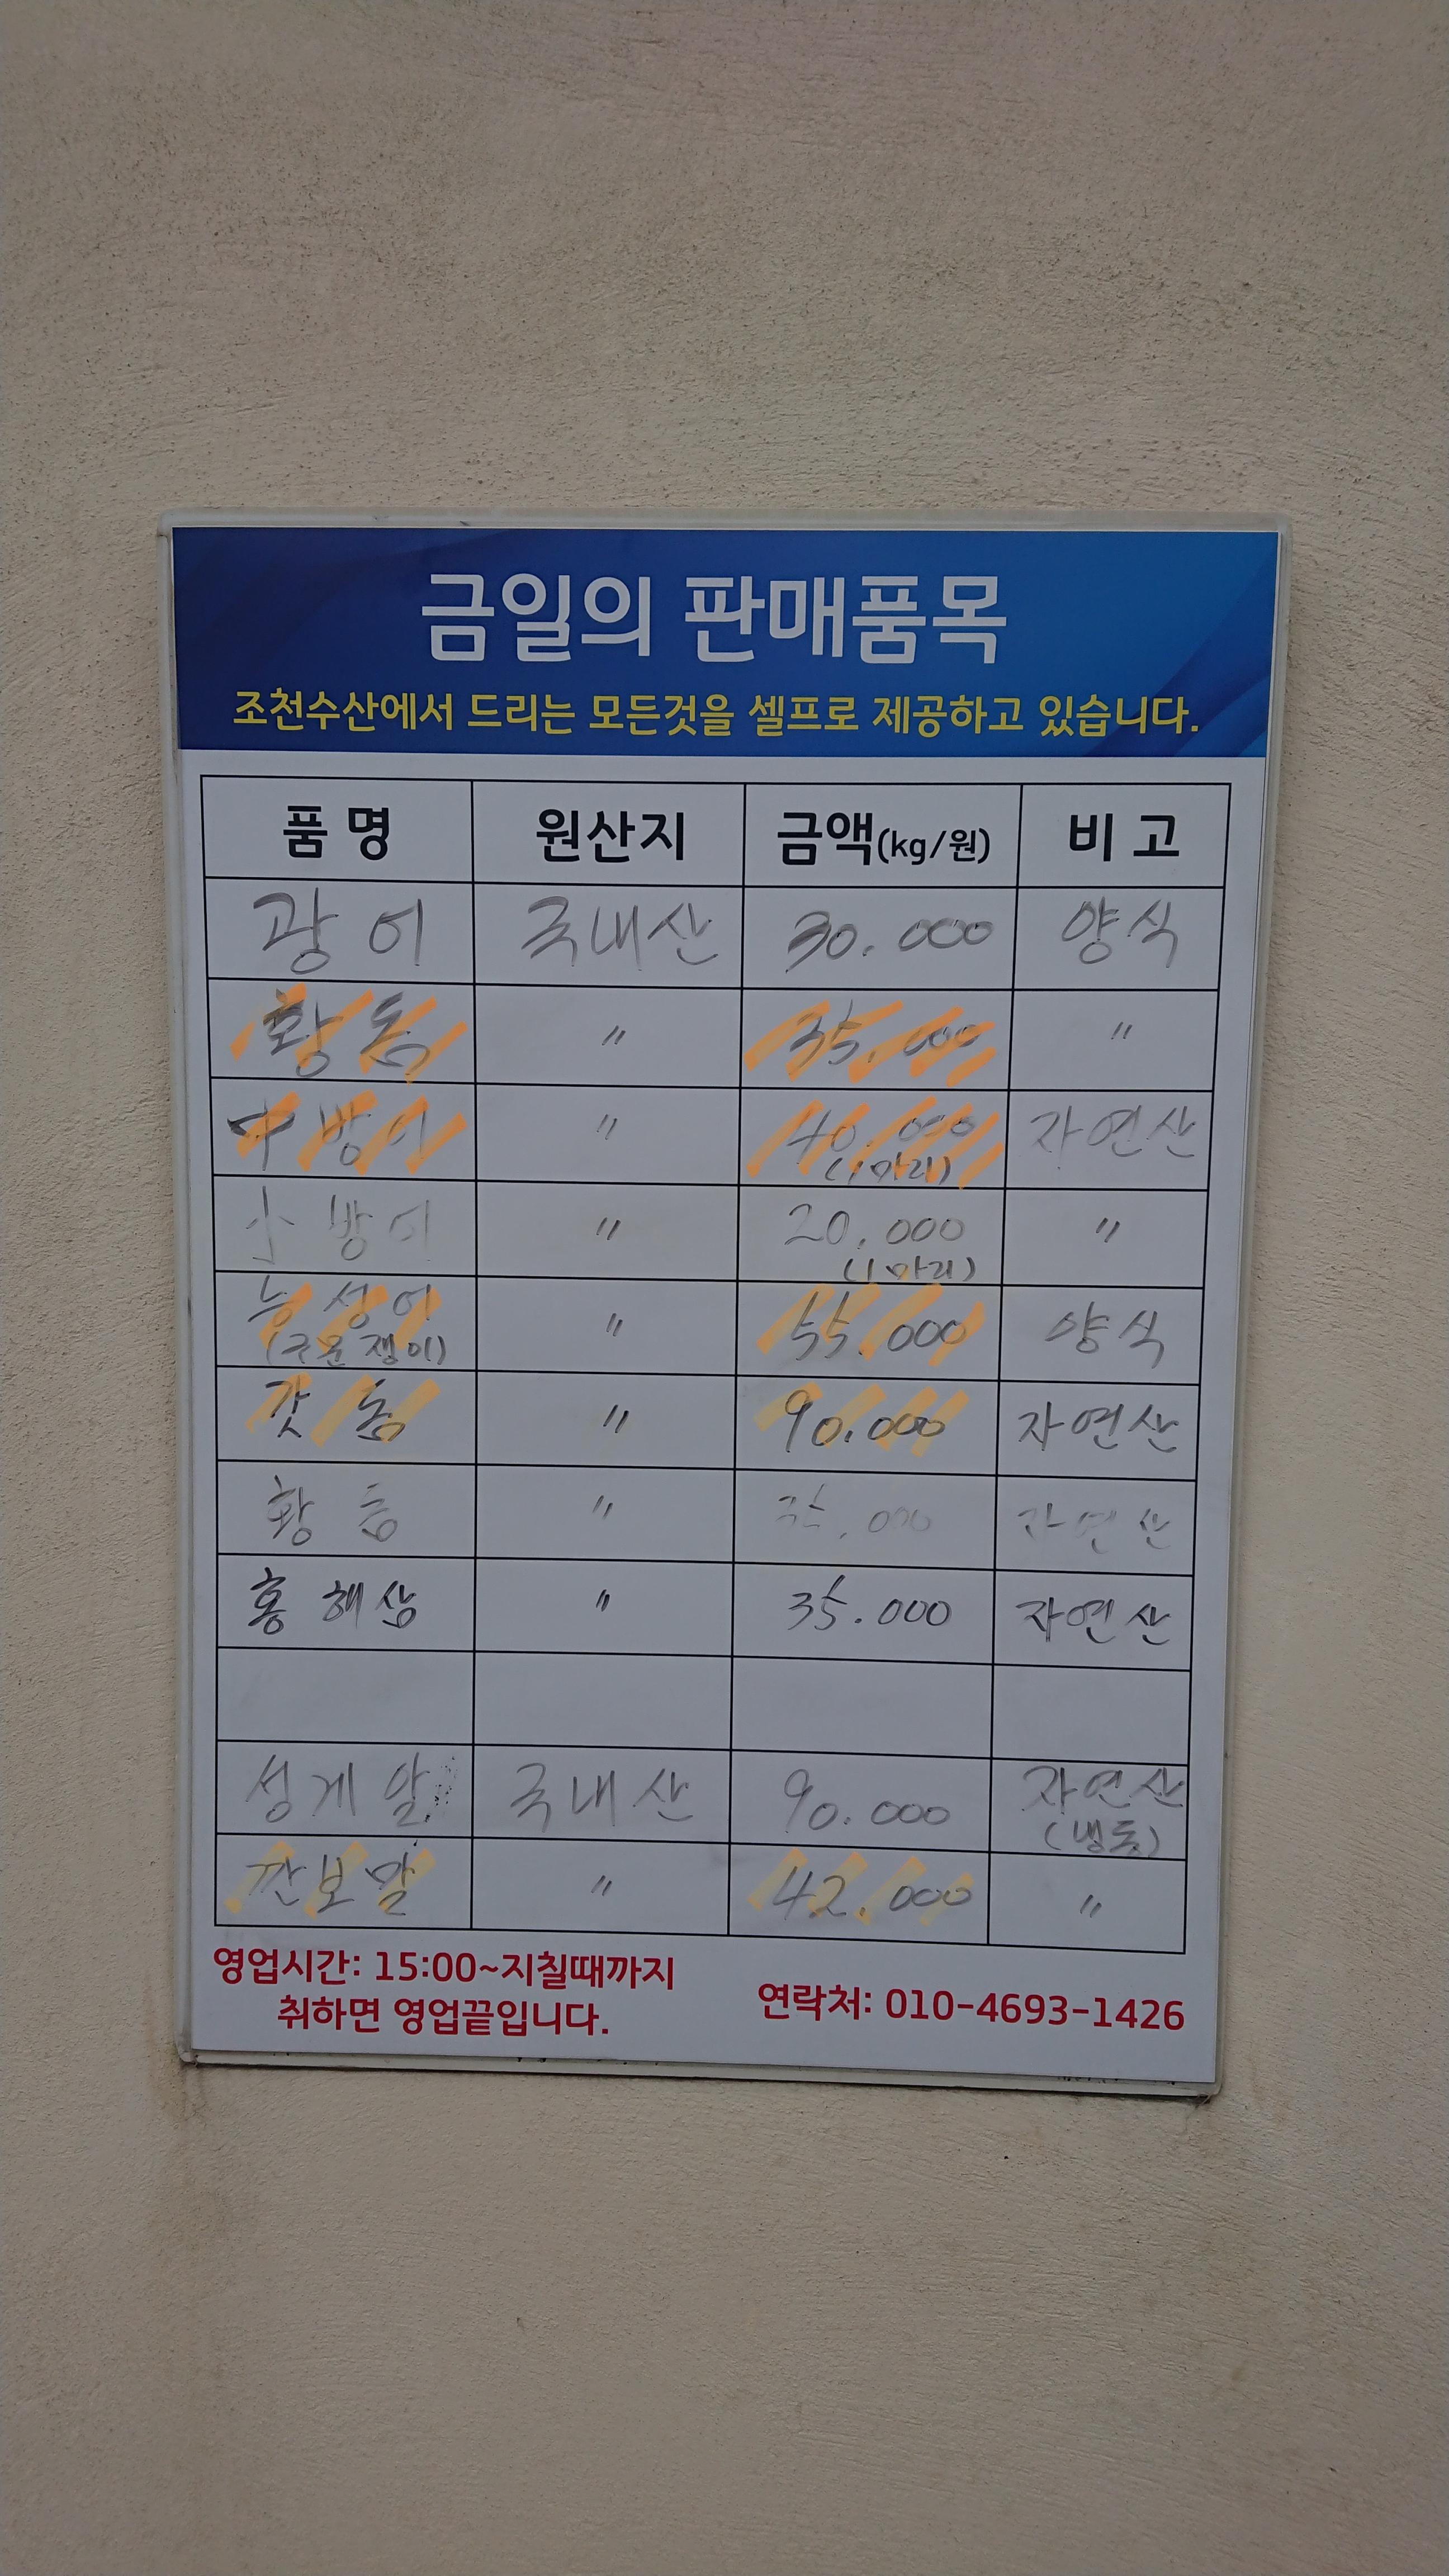 금일의 판매품목
조천수산에서 드리는 모든것을 셀프로 제공하고 있습니다.
품 명 원산지 금액(kg/원) 비 고
광 어 국내산 30.000 양식
황 돔 〃 35.000 〃
中 방어 〃 40.000 자연산
(1마리)
小 방어 〃 20.000 〃
(1마리)
능성어 〃 55.000 양식
(구문쟁이)
갓 돔 〃 90.000 자연산
황 돔 〃 35.000 자연산
홍해삼 〃 35.000 자연산
성게알 국내산 90.000 자연산
(냉동)
깐보말 〃 42.000 〃
영업시간: 15:00~지칠때까지
취하면 영업끝입니다.
연락처: 010-4693-1426